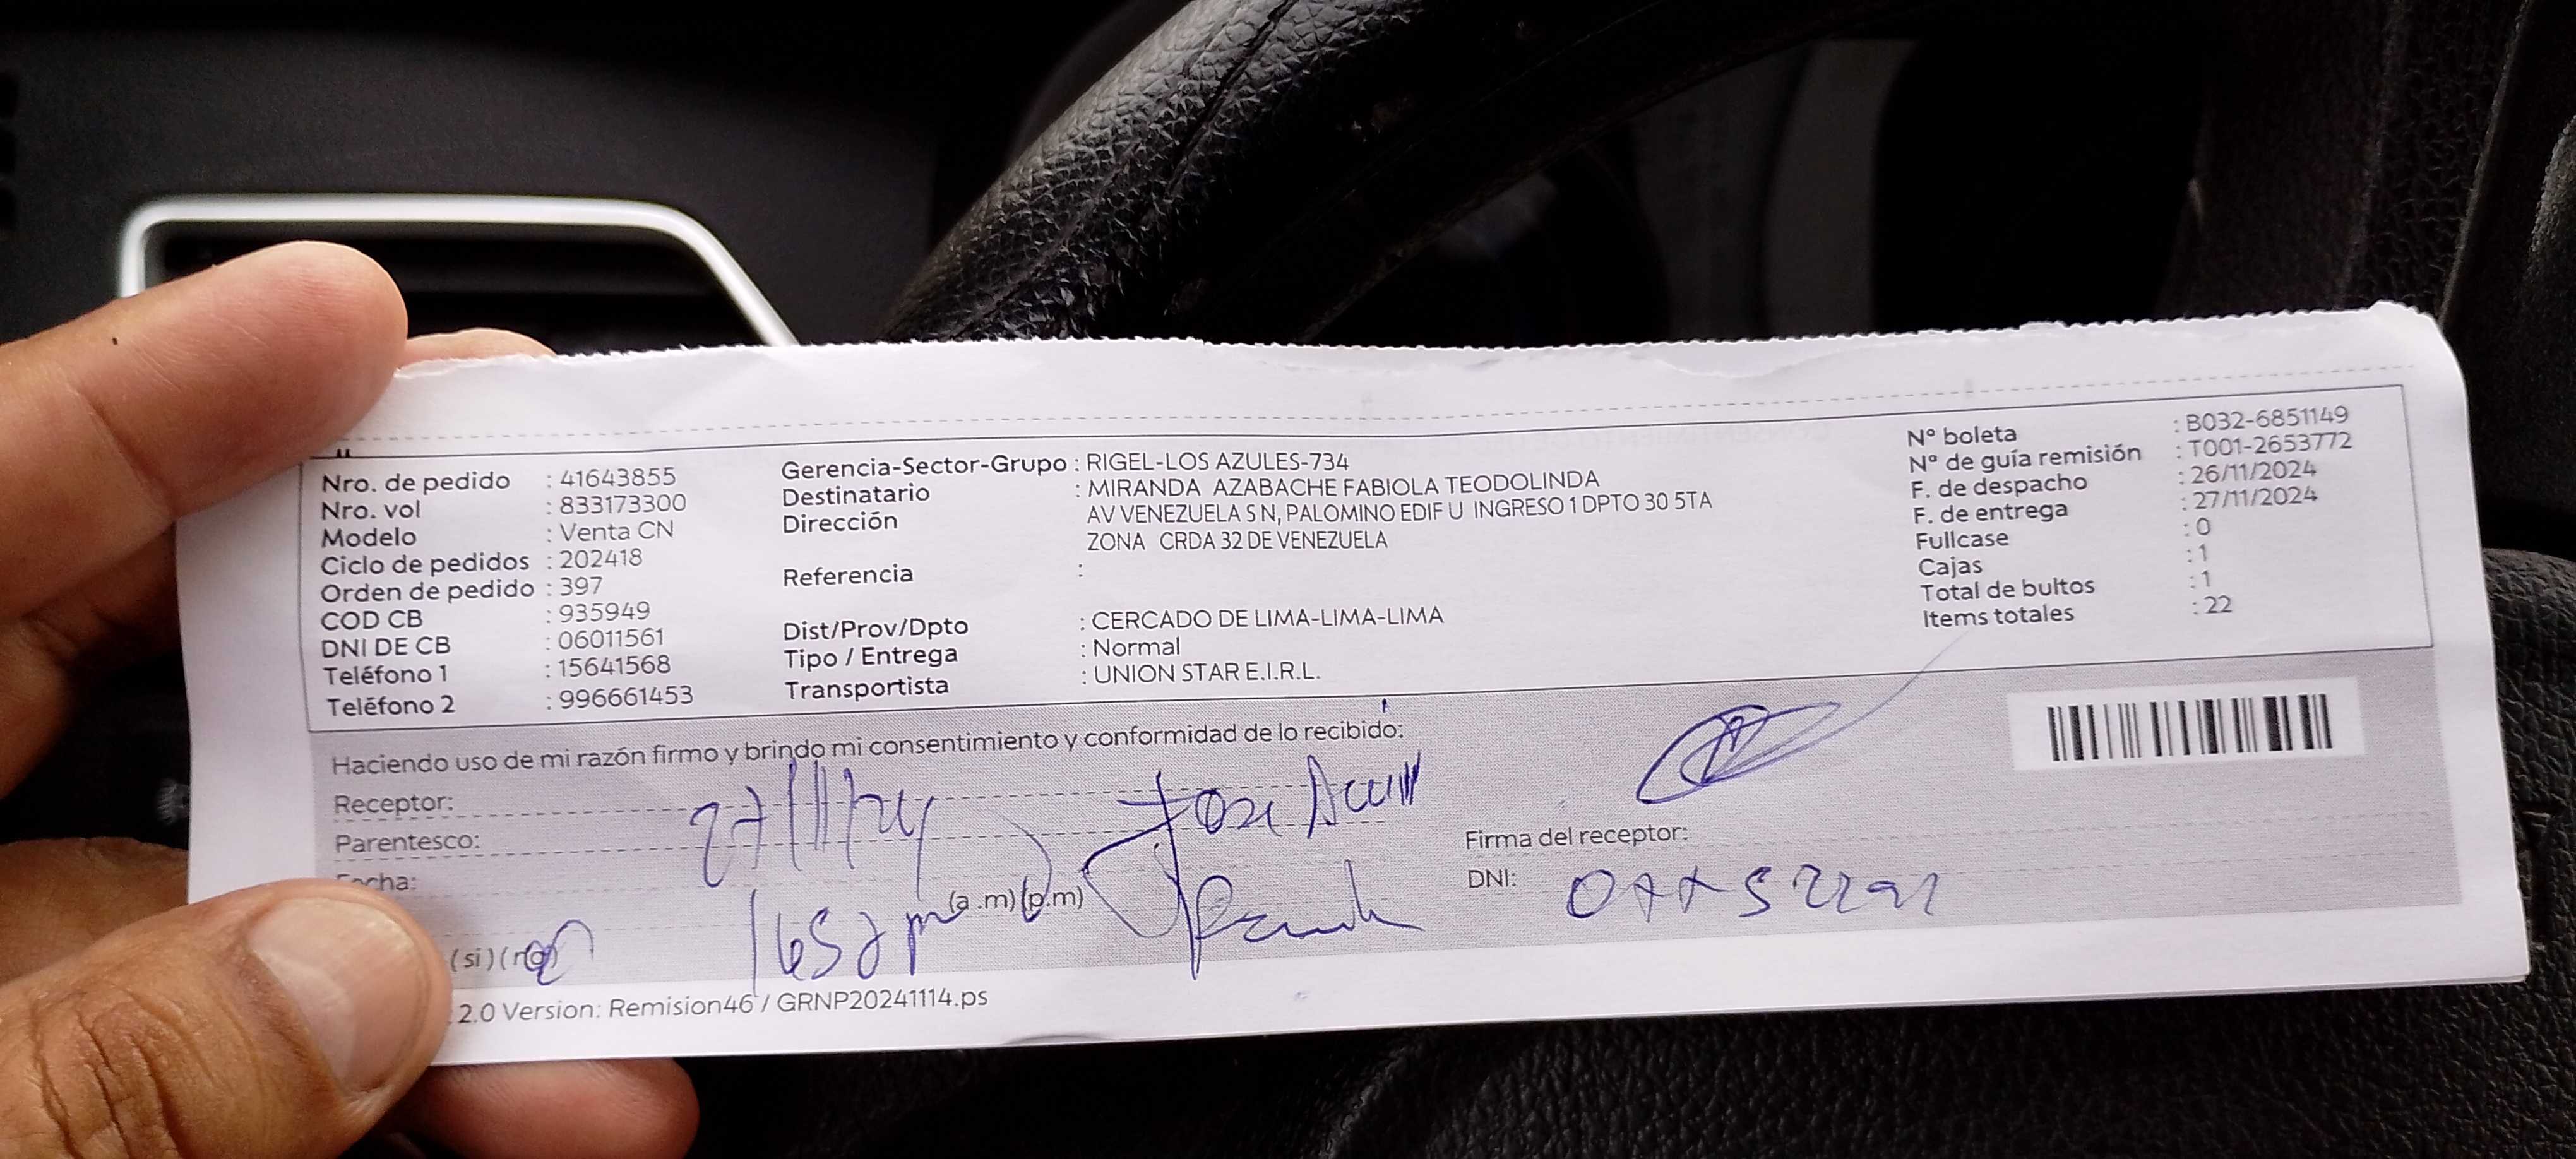 Nro. de pedido : 41643855
Nro. vol : 833173300
Modelo : Venta CN
Ciclo de pedidos : 202418
Orden de pedido : 397
COD CB : 935949
DNI DE CB : 06011561
Teléfono 1 : 15641568
Teléfono 2 : 996661453
Gerencia-Sector-Grupo : RIGEL-LOS AZULES-734
Destinatario : MIRANDA AZABACHE FABIOLA TEODOLINDA
Dirección AV VENEZUELA S N, PALOMINO EDIF U INGRESO 1 DPTO 30 5TA
ZONA CRDA 32 DE VENEZUELA
Referencia :
Dist/Prov/Dpto : CERCADO DE LIMA-LIMA-LIMA
Tipo / Entrega : Normal
Transportista : UNION STAR E.I.R.L.
Nº boleta : B032-6851149
Nº de guía remisión : T001-2653772
F. de despacho : 26/11/2024
F. de entrega : 27/11/2024
Fullcase : 0
Cajas : 1
Total de bultos : 1
Items totales : 22
Haciendo uso de mi razón firmo y brindo mi consentimiento y conformidad de lo recibido:
Receptor: 27/11/24 Jose
Parentesco:
Fecha:
1652 pm (a .m) (p.m)
(si) (no)
Firma del receptor:
DNI:
2.0 Version: Remision46 / GRNP20241114.ps